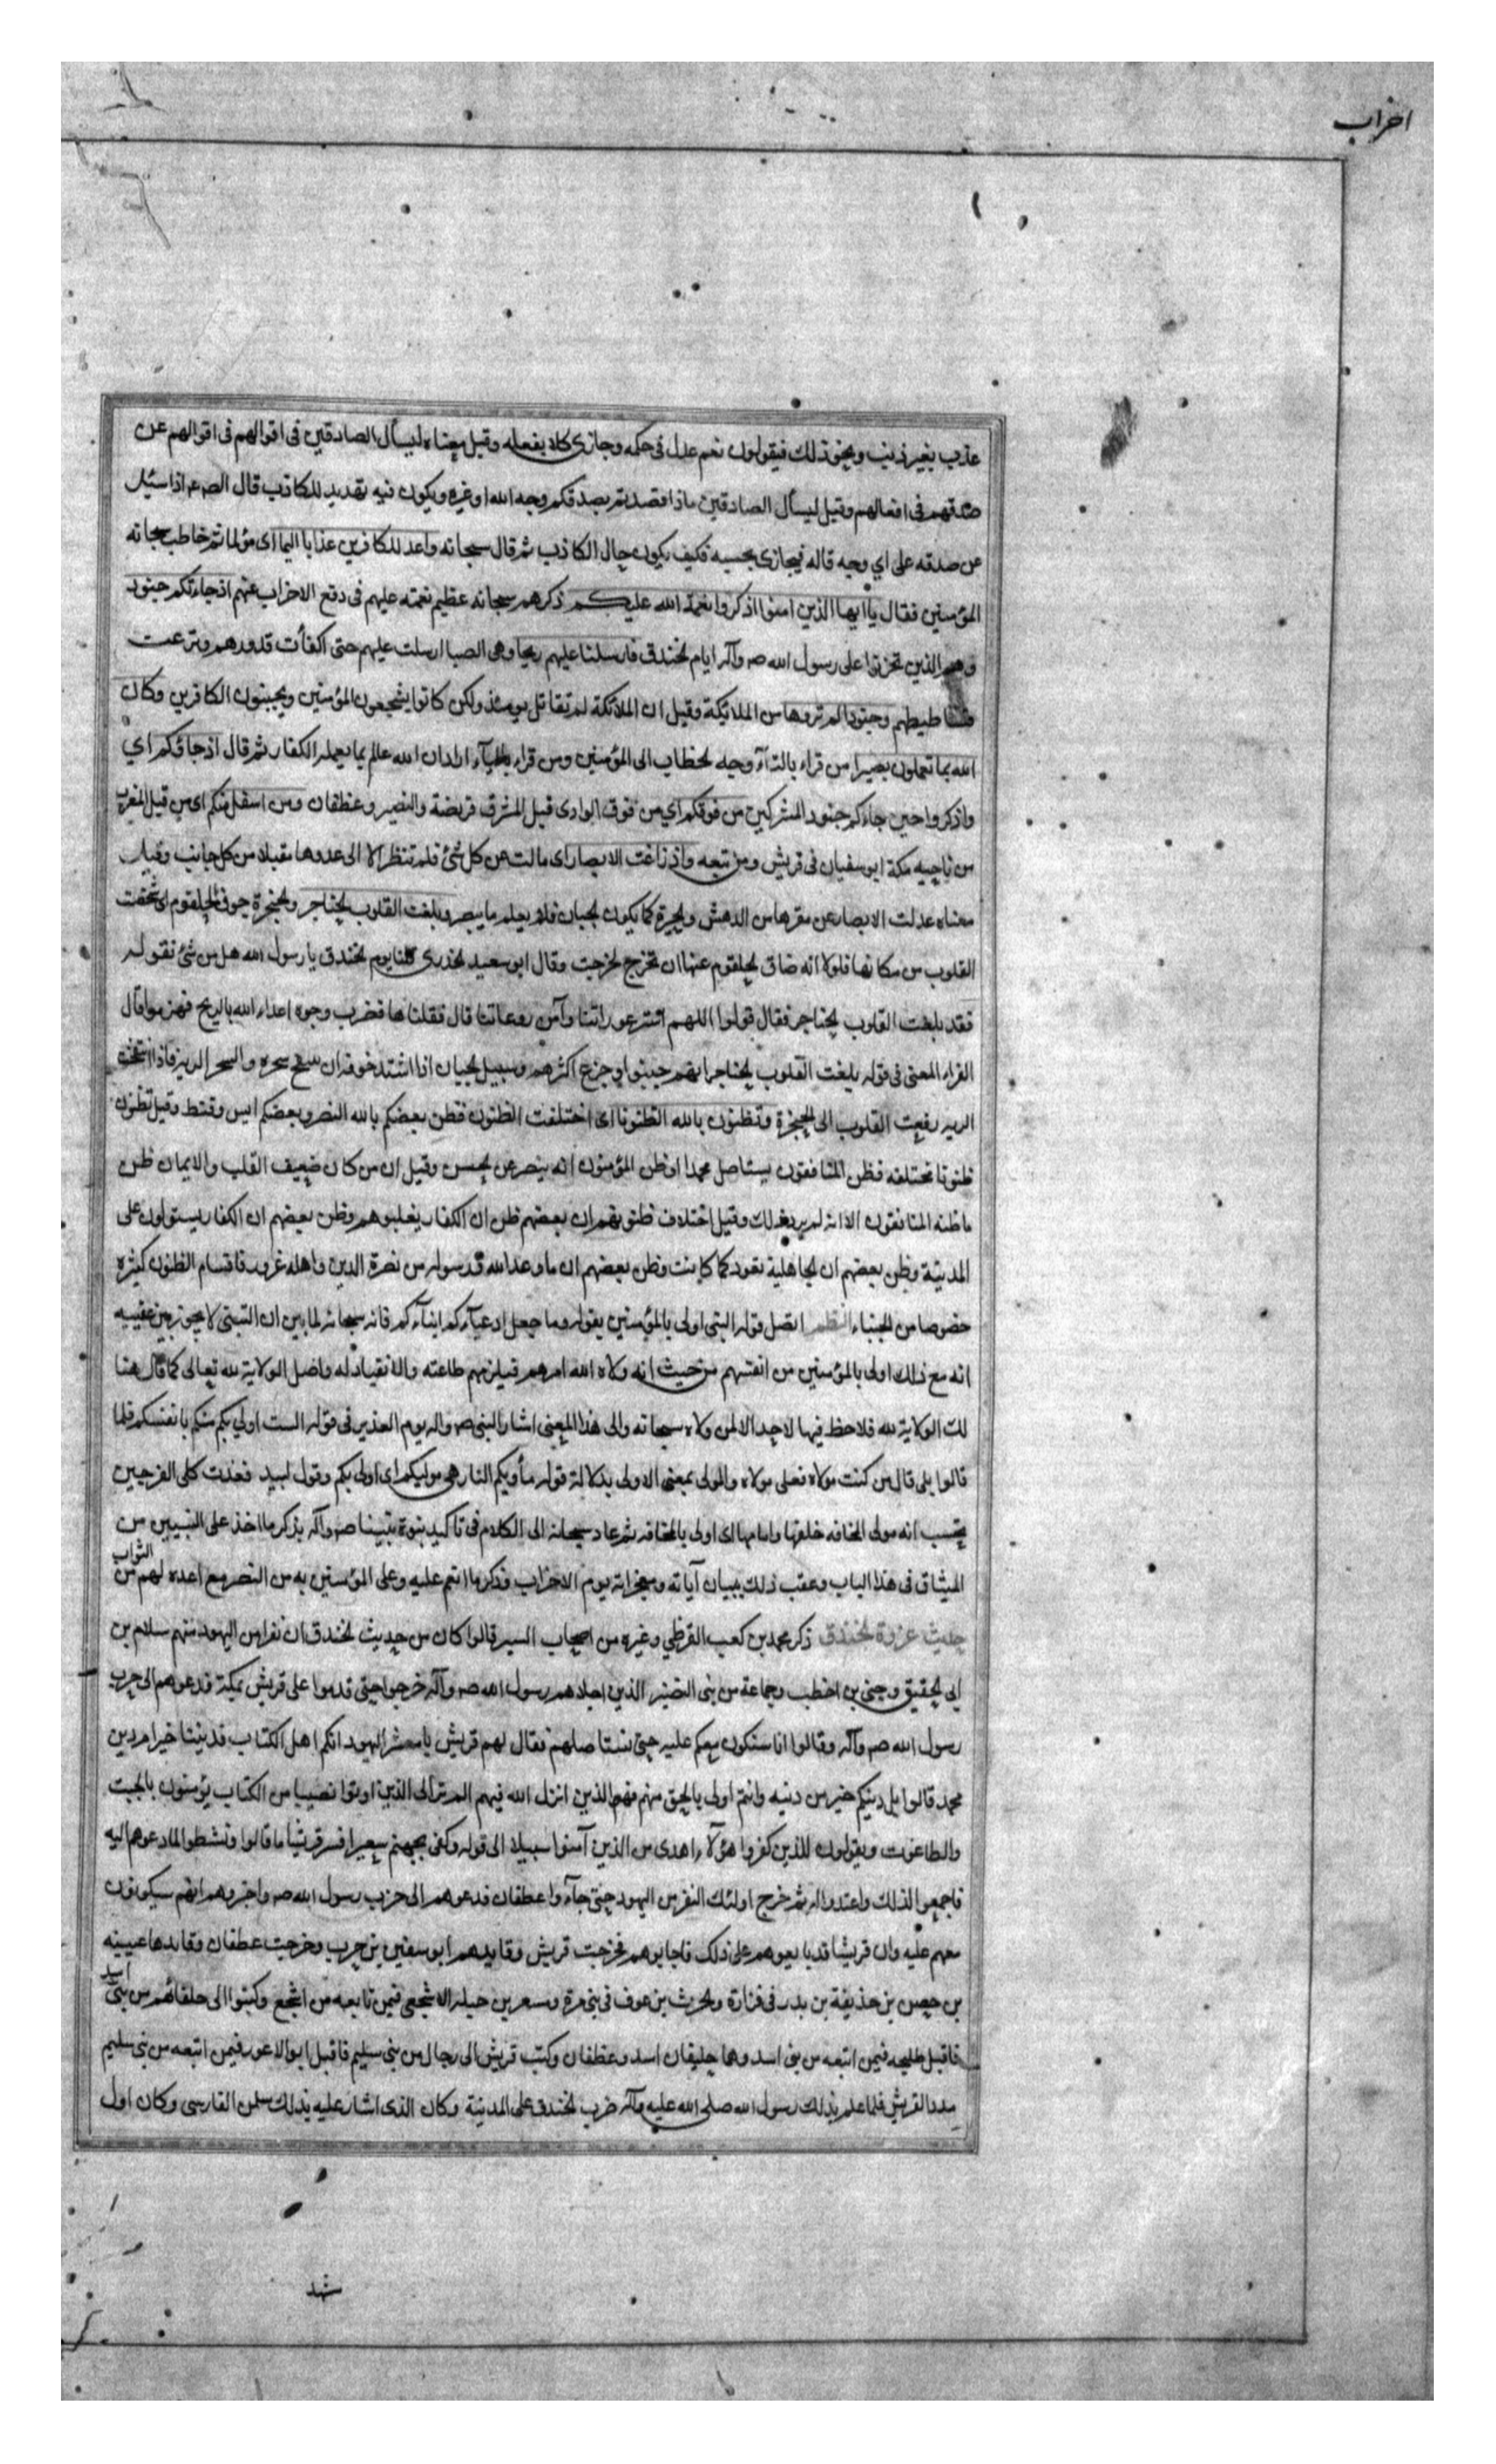 احزاب
عذب بغير ذنب ونحو ذلك فيقولون نعم عدل فى حكمه وجازى كلا بفعله وقيل معناه ليسأل الصادقين فى اقوالهم فى اقوالهم عن
صدقهم فى افعالهم وقيل ليسأل الصادقين ماذا قصدتم بصدقكم وجه الله او غيره ويكون فيه تهديد للكاذب قال الصـ ع م اذا سئل
عن صدقه على اي وجه قاله فيجازى بحسبه فكيف يكون حال الكاذب ثم قال سبحانه واعد للكافرين عذابا اليما اى مؤلما ثم خاطب سبحانه
المؤمنين فقال يا ايها الذين امنوا اذكروا نعمة الله عليكم ذكرهم سبحانه عظيم نعمته عليهم فى دفع الاحزاب عنهم اذ جاءتكم جنود
وهم الذين تحزبوا على رسول الله صـ وآله ايام الخندق فارسلنا عليهم ريحا وهى الصبا ارسلت عليهم حتى اكفأت قدورهم ونزعت
فساطيطهم وجنودا لم تروها من الملائيكة وقيل ان الملائكة لم تقاتل يومئذ ولكن كانوا يشجعون المؤمنين ويجبنون الكافرين وكان
الله بما تعملون بصيرا من قراء بالتآء وجه الخطاب الى المؤمنين ومن قراء بالياء اراد ان الله عالم بما يعمله الكفار ثم قال اذ جاؤكم اي
واذكروا حين جاءكم جنود المشركين من فوقكم اي من فوق الوادى قبل المشرق قريضة والنضير وغطفان ومن اسفل منكم اى من قبل المغرب
من ناحيه مكة ابو سفيان فى قريش ومن تبعه واذ زاغت الابصار اى مالت عن كل شئ فلم تنظر الا الى عدوها مقبلا من كل جانب وقيل
معناه عدلت الابصار عن مقرها من الدهش والحيرة كما يكون الجبان فلا يعلم ما يبصر وبلغت القلوب الحناجر والحنجرة جوف الحلقوم اى شخصت
القلوب من مكانها فلولا انه ضاق الحلقوم عنها ان تخرج لخرجت وقال ابو سعيد الخدرى قلنا يوم الخندق يا رسول الله هل من شئ نقوله
فقد بلغت القلوب الحناجر فقال قولوا اللهم استر عوراتنا وآمن روعاتنا قال فقلناها فضرب وجوه اعداء الله بالريح فهزموا قال
الفراء المعنى فى قوله بلغت القلوب الحناجر انهم جبنوا وجزع اكثرهم وسبيل الجبان اذا اشتد خوفه ان ينتفخ سحره والسحر الريه فاذا انتفخت
الريه رفعت القلوب الى الحنجرة وتظنون بالله الظنونا اى اختلفت الظنون فظن بعضكم بالله النصر وبعضكم ايس وقنط وقيل تظنون
ظنونا مختلفه فظن المنافقون يستاصل محمدا وظن المؤمنون انه ينصر عن الحسن وقيل ان من كان ضعيف القلب والايمان ظن
ما ظنه المنافقون الا انه لم يرد ذلك وقيل اختلاف ظنونهم ان بعضهم ظن ان الكفار يغلبوهم وظن بعضهم ان الكفار يستولون على
المدينة وظن بعضهم ان الجاهلية تعود كما كانت وظن بعضهم ان ما وعد الله ورسوله من نصرة الدين واهله غرور فاقسام الظنون كثيره
خصوصا من الجبناء النظم اتصل قوله النبى اولى بالمؤمنين بقوله وما جعل ادعيآءكم ابنآءكم فانه سبحانه لما بين ان التبنى لا يجوز بين عقيبه
انه مع ذلك اولى بالمؤمنين من انفسهم من حيث انه ولاه الله امرهم فيلزمهم طاعته والانقياد له واصل الولاية لله تعالى كما قال هنا
لك الولاية لله فلاحظ فيها لاحد الا لمن ولاه سبحانه والى هذا المعنى اشار النبى صـ وآله يوم الغدير فى قوله الست اولى بكم منكم بانفسكم فلما
قالوا بلى قال من كنت مولاه فعلى مولاه والمولى بمعنى الاولى بدلالة قوله مأويكم النار هى موليكم اى اولى بكم وقول لبيد فغدت كلى الفرجين
تحسب انه مولى المخافه خلفها وامامها اى اولى بالمخافة ثم عاد سبحانه الى الكلام فى تاكيد نبوة نبينا صـ وآله بذكر ما اخذ على النبيين من
الميثاق فى هذا الباب وعقب ذلك ببيان آياته ومعجزاته يوم الاحزاب وذكر ما انعم عليه وعلى المؤمنين به من النصر مع اعده لهم من الثواب
حديث غزوة الخندق ذكر محمد بن كعب القرظي وغيره من اصحاب السير قالوا كان من حديث الخندق ان نفرا من اليهود منهم سلام بن
ابى الحقيق وحيى بن اخطب وجماعة من بنى النضير الذين اجلاهم رسول الله صـ وآله خرجوا حتى قدموا على قريش بمكة فدعوهم الى حرب
رسول الله صـ وآله وقالوا انا سنكون معكم عليه حتى نستاصلهم فقال لهم قريش يا معشر اليهود انكم اهل الكتاب فديننا خير ام دين
محمد قالوا بل دينكم خير من دينه وانتم اولى بالحق منهم فهم الذين انزل الله فيهم الم تر الى الذين اوتوا نصيبا من الكتاب يؤمنون بالجبت
والطاغوت ويقولون للذين كفروا هؤلآء اهدى من الذين آمنوا سبيلا الى قوله وكفى بجهنم سعيرا فسر قريشا ما قالوا ونشطوا لما دعوهم اليه
فاجمعوا لذلك واعتدوا له ثم خرج اولئك النفر من اليهود حتى جآءوا غطفان فدعوهم الى حرب رسول الله صـ واخبروهم انهم سيكونون
معهم عليه وان قريشا قد بايعوهم على ذلك فاجابوهم فخرجت قريش وقايدهم ابو سفين بن حرب وخرجت غطفان وقايدها عيينه
بن حصن بن حذيفة بن بدر فى فزارة والحرث بن عوف فى بنى مرة ومسعر بن جبله الاشجعى فيمن تابعه من اشجع وكتبوا الى حلفائهم من بنى اسد
فاقبل طليحه فيمن اتبعه من بنى اسد وهما حليفان اسد وغطفان وكتب قريش الى رجال من بنى سليم فاقبل ابو الاعور فيمن اتبعه من بنى سليم
مددا لقريش فلما علم بذلك رسول الله صلى الله عليه وآله ضرب الخندق على المدينة وكان الذى اشار عليه بذلك سلمن الفارسى وكان اول
شهد